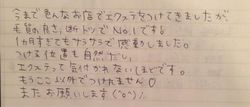 今まで色んなお店でエクステをつけてきましたが、
毛質の良さ、断トツでNo.1です!
1ヵ月すぎてもサラサラで感動しました。
つける位置も自然だし、
エクステって気付かれないしほどです。
もうここ以外でつけれません
またお願いします(^o^)/